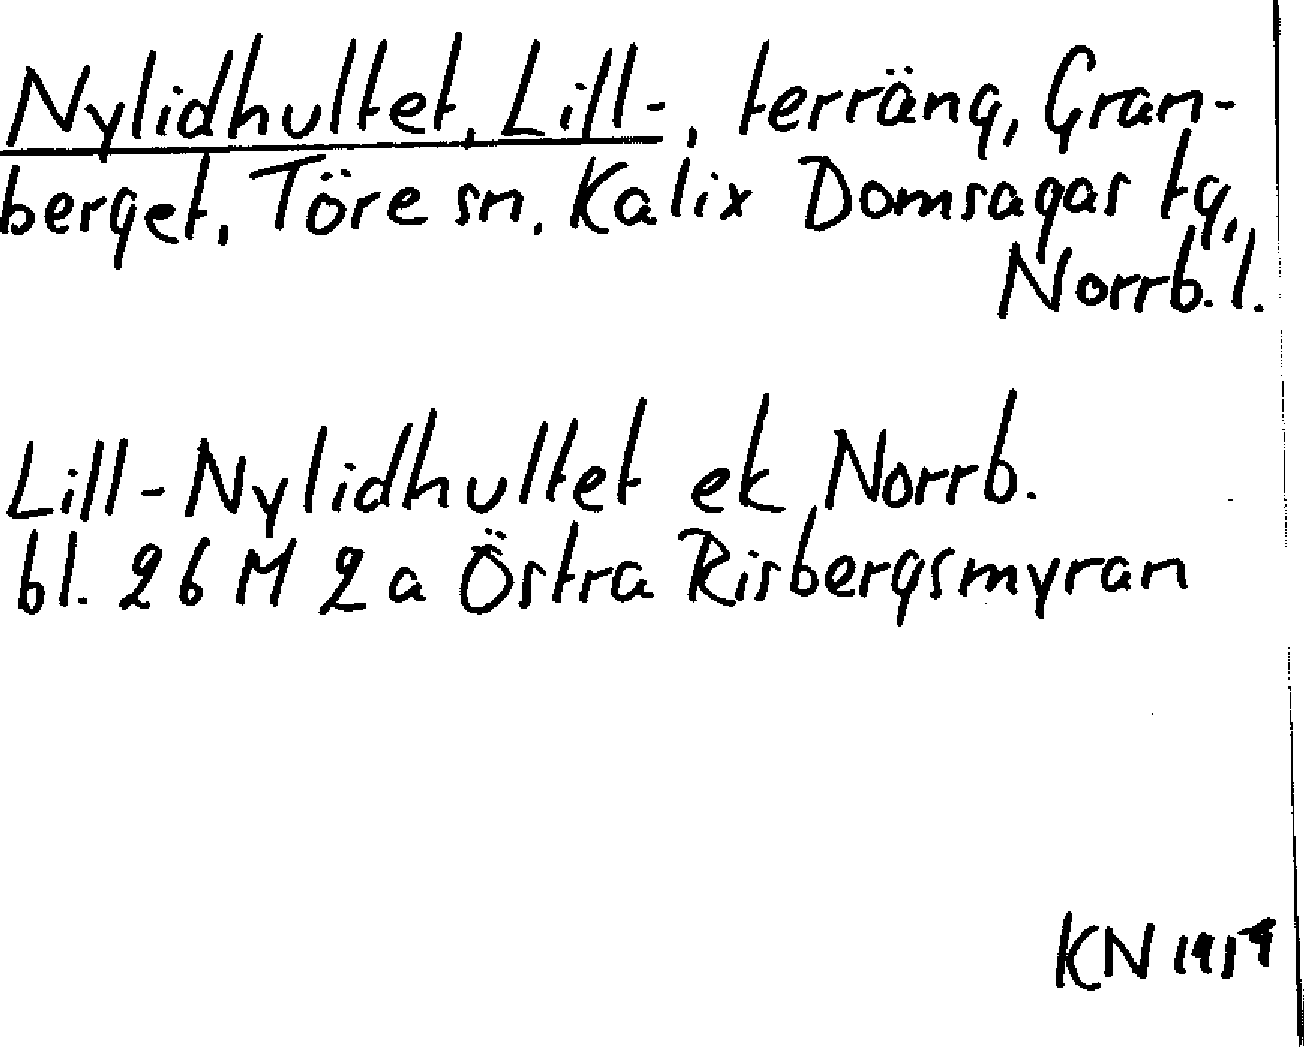 Nylidhultet, Lill-, terräng, Gran-
berget, Töre sn. Kalix Domsagas tg,
Norrb. l.
Lill-Nylidhultet ek Norrb.
bl. 26 M 2 a Östra Risbergsmyran
KN